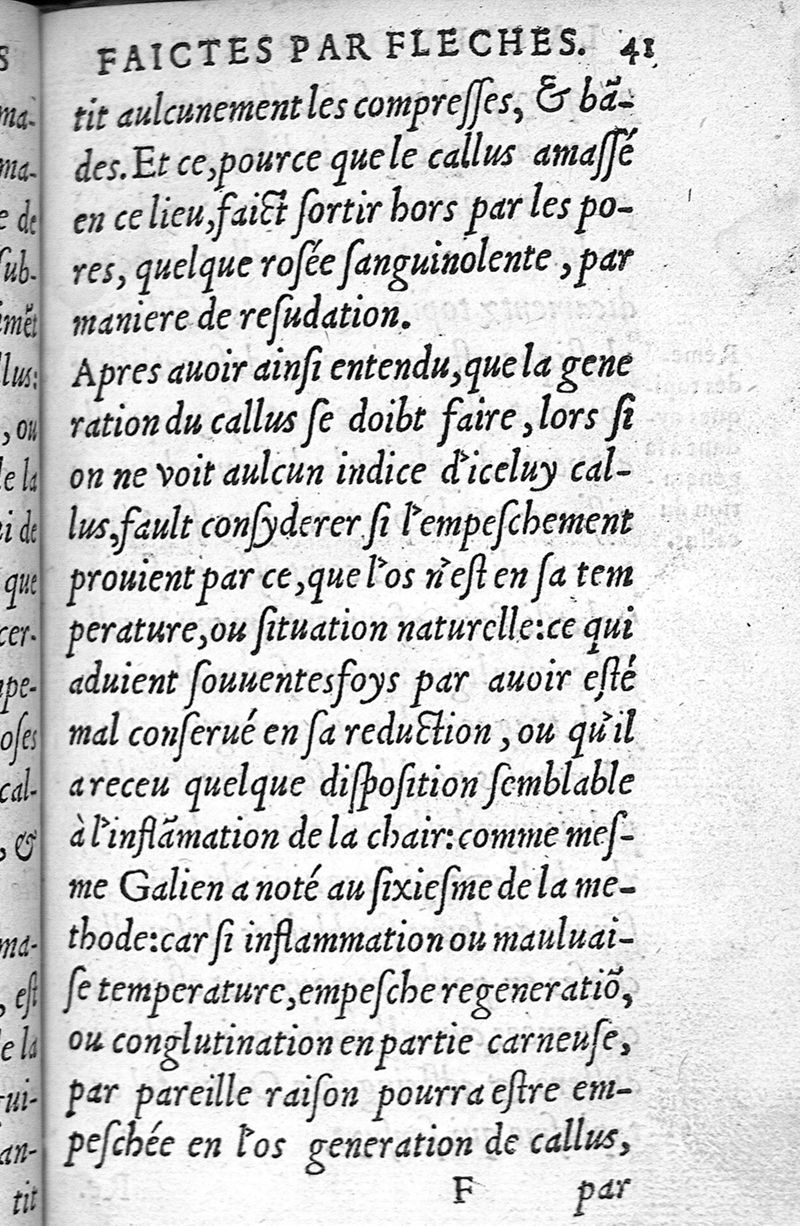 FAICTES PAR FLECHES. 41
tit aulcunement les compreſſes, & bã-
des. Et ce, pource que le callus amaſſé
en ce lieu, faict ſortir hors par les po-
res, quelque roſée ſanguinolente, par
maniere de reſudation.
Apres auoir ainſi entendu, que la gene
ration du callus ſe doibt faire, lors ſi
on ne voit aulcun indice d'iceluy cal-
lus, fault conſyderer ſi l'empeſchement
prouient par ce, que l'os n'eſt en ſa tem
perature, ou ſituation naturelle: ce qui
aduient ſouuentesfoys par auoir eſté
mal conſerué en ſa reduction, ou qu'il
a receu quelque diſpoſition ſemblable
à l'inflãmation de la chair: comme meſ-
me Galien a noté au ſixieſme de la me-
thode: car ſi inflammation ou mauluai-
ſe temperature, empeſche regeneratiõ,
ou conglutination en partie carneuſe,
par pareille raiſon pourra eſtre em-
peſchée en l'os generation de callus,
F par